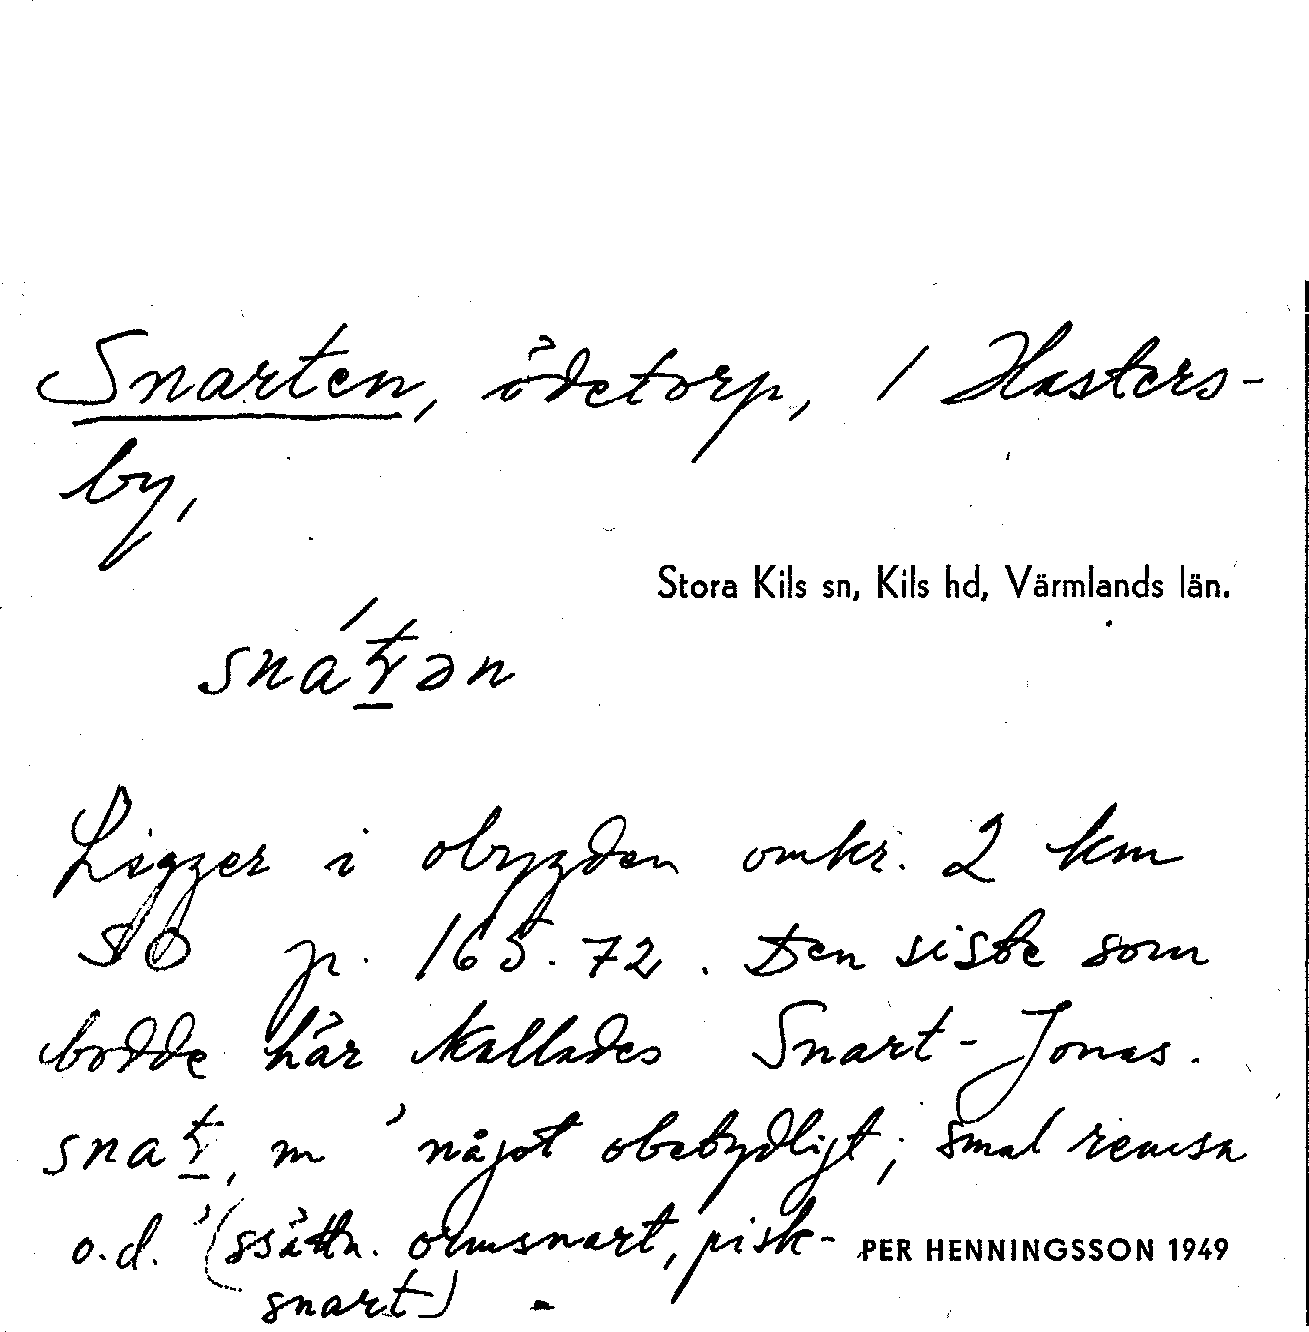 Snarten, ödetorp, / Hasters-
by,
Stora Kils sn, Kils hd, Värmlands län.
Ligger i obygden omkr. 2 km
SO p. 165.72. Den siste som
bodde här kallades Snart-Jonas.
m 'något obetydligt; smal remsa
o.d.' (ssättn. ormsnart, pisk-
PER HENNINGSSON 1949
snart) -